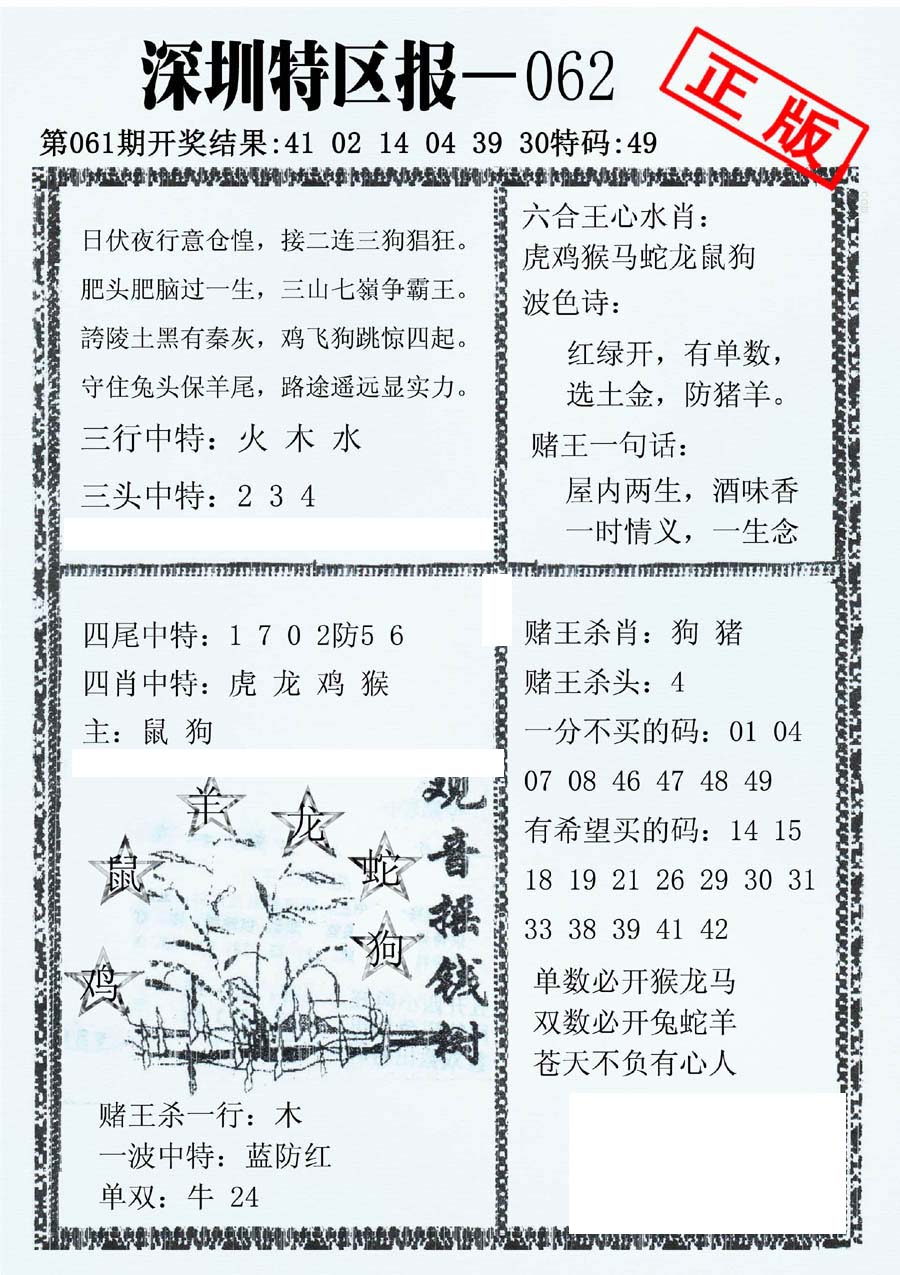 深圳特区报－062
正版
第061期开奖结果:41 02 14 04 39 30特码:49
日伏夜行意仓惶，接二连三狗猖狂。
肥头肥脑过一生，三山七嶺争霸王。
誇陵土黑有秦灰，鸡飞狗跳惊四起。
守住兔头保羊尾，路途遥远显实力。
三行中特：火 木 水
三头中特：2 3 4
六合王心水肖：
虎鸡猴马蛇龙鼠狗
波色诗：
红绿开，有单数，
选土金，防猪羊。
赌王一句话：
屋内两生，酒味香
一时情义，一生念
四尾中特：1 7 0 2防5 6
四肖中特：虎 龙 鸡 猴
主：鼠 狗
羊
龙
鼠
蛇
狗
鸡
观音摇钱树
赌王杀一行：木
一波中特：蓝防红
单双：牛 24
赌王杀肖：狗 猪
赌王杀头：4
一分不买的码：01 04
07 08 46 47 48 49
有希望买的码：14 15
18 19 21 26 29 30 31
33 38 39 41 42
单数必开猴龙马
双数必开兔蛇羊
苍天不负有心人